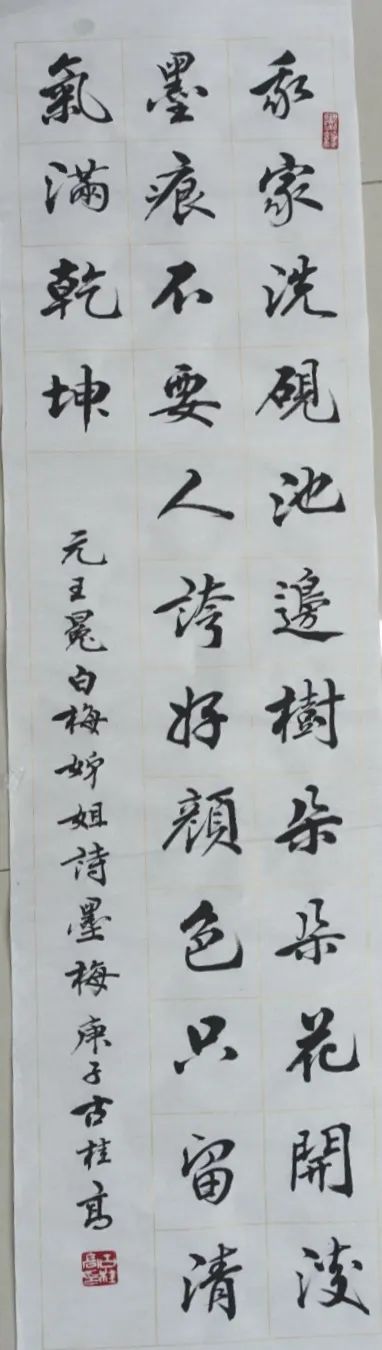 我家洗硯池邊樹朵朵花開淡
墨痕不要人誇好顏色只留清
氣滿乾坤
元王冕白梅姊姐詩墨梅庚子古桂高